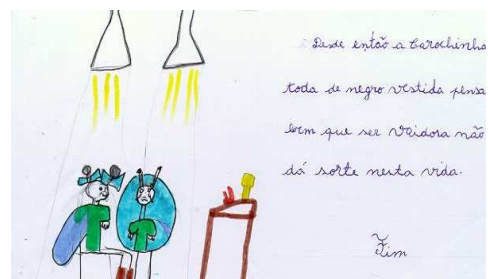 Desde então a Carochinha
toda de negro vestida pensa
bem que ser vaidosa não
dá sorte nesta vida.
Fim